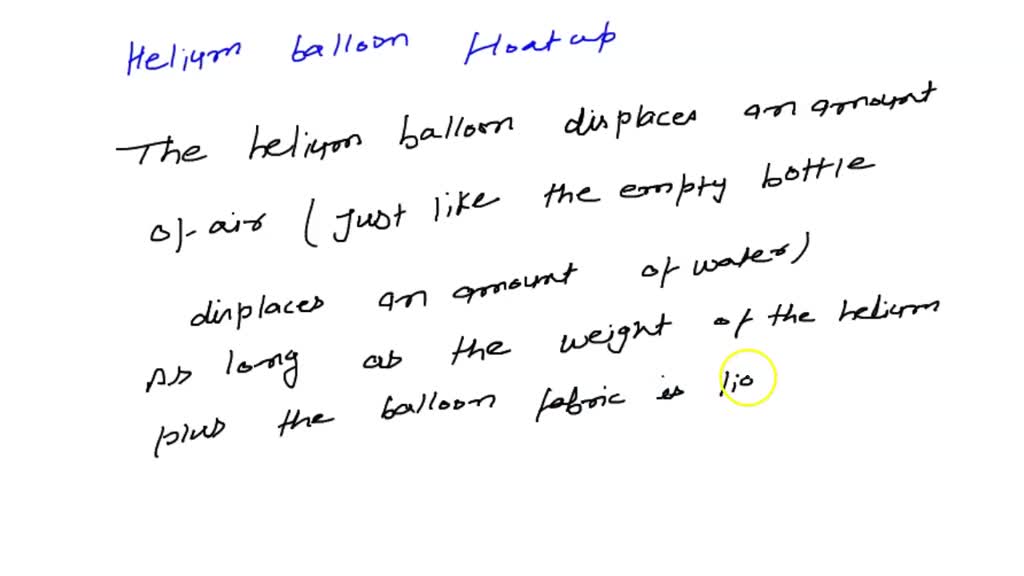 Helium balloon float up
The helium balloon displaces an amount
of air (Just like the empty bottle
displaces an amount of water)
As long as the weight of the helium
plus the balloon fabric is lig